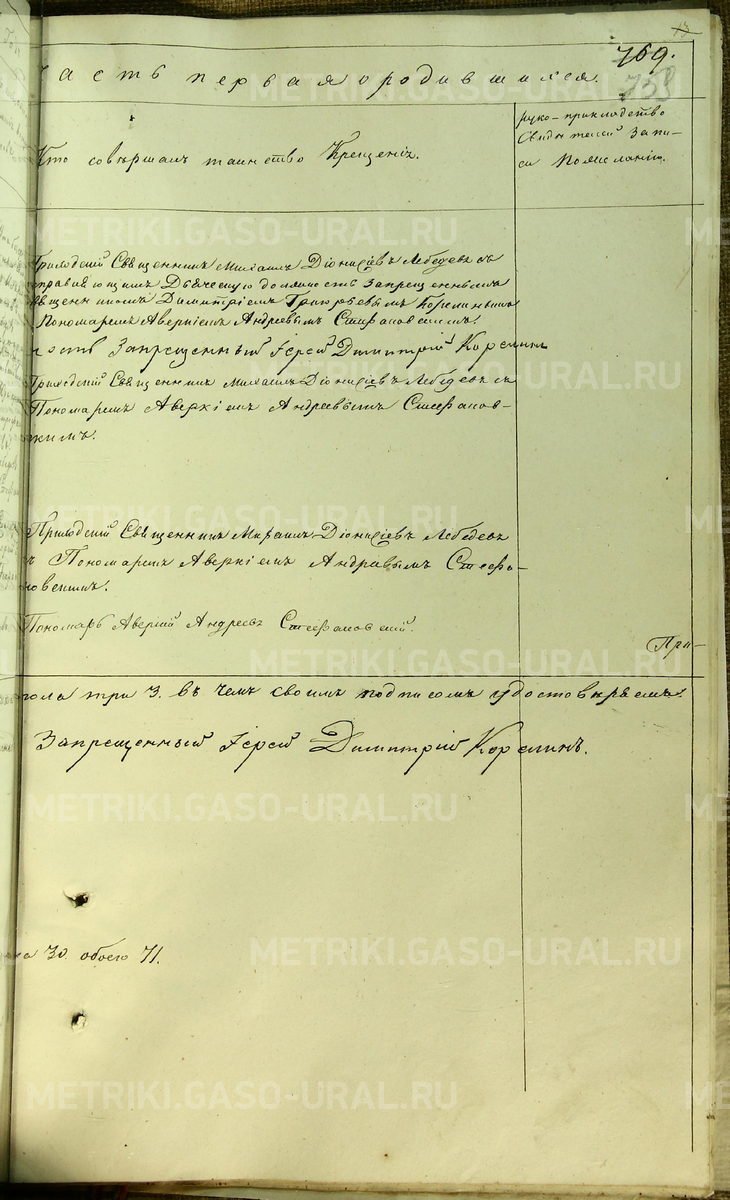 13
769.
758
часть первая о родившихся.
Кто совершалъ таинство Крещенія.
руко-прикладство
свидѣтелей запи-
си по желанію.
Приходский Священникъ Михаилъ Діонисіевъ Лебедевъ съ
справляющимъ Дьяческую должность Запрещеннымъ
священникомъ Димитріемъ Григорьевымъ Корелинымъ
Пономаремъ Аверкіемъ Андреевымъ Стефановскимъ.
Запрещенный Іерей Димитрій Корелинъ
Приходский Священникъ Михаилъ Діонисіевъ Лебедевъ съ
Пономаремъ Аверкіемъ Андреевымъ Стефанов-
скимъ.
Приходский Священникъ Михаилъ Діонисіевъ Лебедевъ
съ Пономаремъ Аверкіемъ Андравымъ Стефа-
новскимъ.
Пономарь Аверкий Андреевъ Стефановский.
При-
пола три 3. въ чемъ своимъ подписомъ удостовѣряемъ
Запрещенный Іерей Димитрій Корелинъ.
30. обоего 71.
METRIKI.GASO-URAL.RU